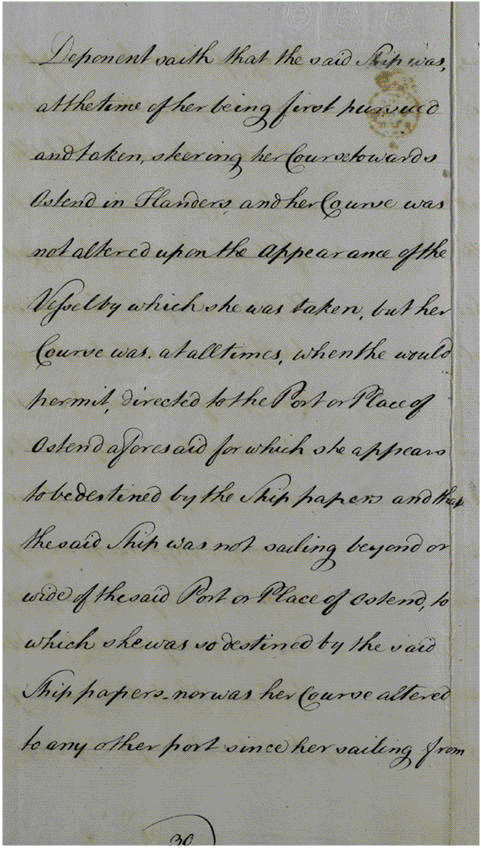 Deponent saith that the said Ship was,
at the time of her being first pursued
and taken, steering her Course towards
Ostend in Flanders, and her Course was
not altered upon the appearance of the
Vessel by which she was taken, but her
Course was, at all times, when the would
permit, directed to the Port or Place of
Ostend aforesaid for which she appears
to be destined by the Ship papers and that
the said Ship was not sailing beyond or
wide of the said Port or Place of Ostend, to
which she was so destined by the said
Ship papers nor was her Course altered
to any other port since her sailing from
30